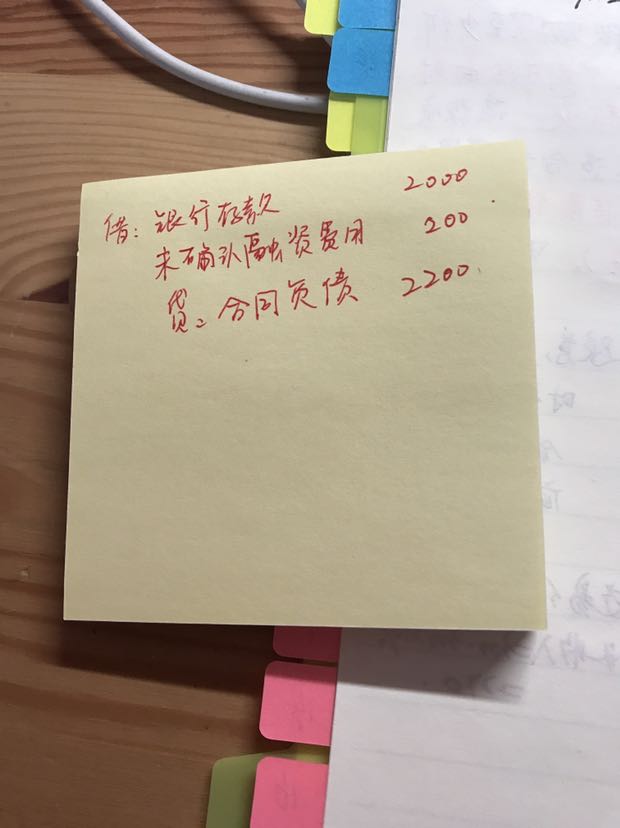 借：银行存款 2000
未确认融资费用 200
贷：合同负债 2200